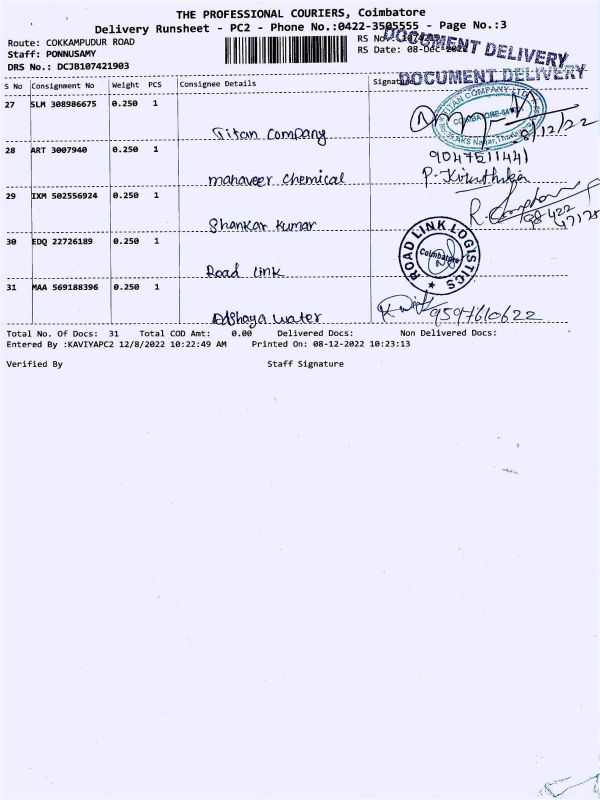 THE PROFESSIONAL COURIERS, Coimbatore
Delivery Runsheet - PC2 - Phone No.:0422-3505555 - Page No.:3
Route: COKKAMPUDUR ROAD
RS No.:
DOCUMENT DELIVERY
Staff: PONNUSAMY
RS Date: 08-Dec-2022
DRS No.: DCJB107421903
DOCUMENT DELIVERY
S No Consignment No Weight PCS Consignee Details Signature
27 SLM 308986675 0.250 1
TITAN COMPANY LTD
Titan Company
8/12/22
28 ART 3007940 0.250 1
9047511441
mahaveer chemical
29 IXM 502556924 0.250 1
Shankar kumar
30 EDQ 22726189 0.250 1
ROAD LINK LOGISTICS
Coimbatore
Road link
31 MAA 569188396 0.250 1
Adshaya water
9597610622
Total No. Of Docs: 31 Total COD Amt: 0.00 Delivered Docs: Non Delivered Docs:
Entered By :KAVIYAPC2 12/8/2022 10:22:49 AM Printed On: 08-12-2022 10:23:13
Verified By Staff Signature